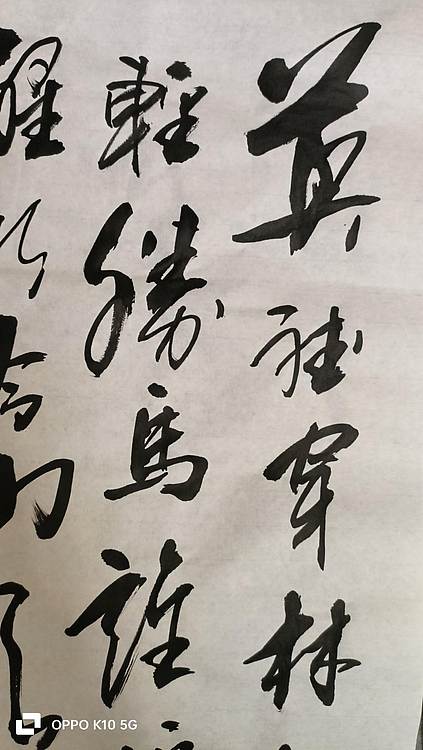 莫聽穿林
輕勝馬誰
醒
OPPO K10 5G